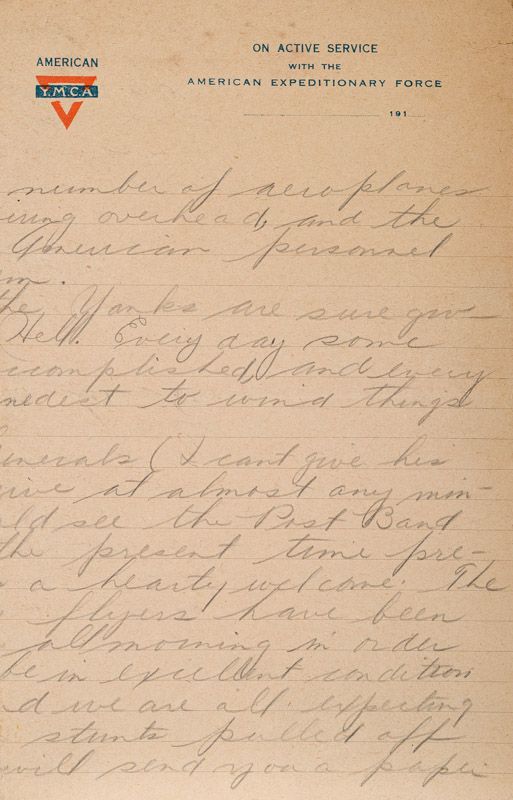 AMERICAN
Y.M.C.A.
ON ACTIVE SERVICE
WITH THE
AMERICAN EXPEDITIONARY FORCE
191
number of aeroplanes
overhead, and the
American personnel
the Yanks are sure giv-
Hell. Every day some
ccomplished, and every
nedest to wind things
enerals (I cant give his
rive at almost any min-
ld see the Post Band
the present time pre-
a hearty welcome. The
flyers have been
all morning in order
be in excellent condition
d we are all expecting
stunts pulled off
will send you a paper